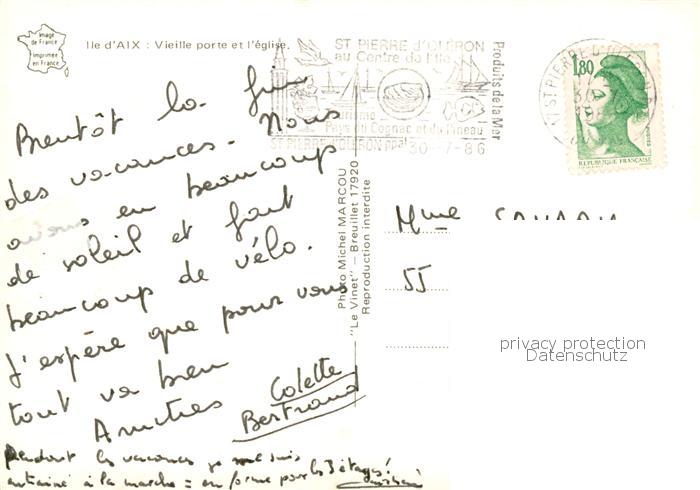 Image
de France
Imprimée
en France
Ile d'AIX : Vieille porte et l'église.
ST PIERRE D'OLERON
au Centre de l'Ile
Produits de la Mer
Tourisme
Pays du Cognac et du Pineau
ST PIERRE D'OLERON PPAL 30-7-86
1,80
REPUBLIQUE FRANÇAISE
Bientôt la fin
des vacances. Nous
avons eu beaucoup
de soleil et fait
beaucoup de vélo.
J'espère que pour vous
tout va bien
Amitiés Colette
Bertrand
Pendant les vacances je me suis
entrainé à la marche = en forme pour les 3 étages!
Photo Michel MARCOU
"Le Vinet" – Breuillet 17920
Reproduction interdite
Mme
55
privacy protection
Datenschutz